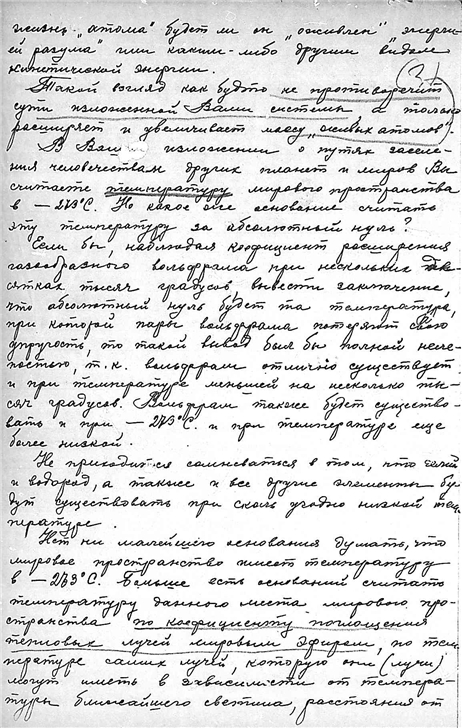 жизнь „атома" будет ли он „оживлен" „энерги-
ей разума" или каким-либо другим видом
кинетической энергии.
Такой взгляд как будто не противоречит
сути изложенной Вами системы а только
расширяет и увеличивает массу „живых атомов".
В Вашем изложении о путях заселе-
ния человечеством других планет и миров Вы
считаете температуру мирового пространства
в – 273°С. Но какое есть основание считать
эту температуру за абсолютный нуль?
Если бы, наблюдая коефициент расширения
газообразного вольфрама при нескольких де-
сятках тысяч градусов, вывести заключение,
что абсолютный нуль будет та температура,
при которой пары вольфрама потеряют свою
упругость, то такой вывод был бы полной неле-
постью, т.к. вольфрам отлично существует
и при температуре меньшей на несколько ты-
сяч градусов. Вольфрам также будет существо-
вать и при – 273°С. и при температуре еще
более низкой.
Не приходится сомневаться в том, что гелий
и водород, а также и все другие элементы бу-
дут существовать при сколь угодно низкой тем-
пературе.
Нет ни малейшего основания думать, что
мировое пространство имеет температуру
в – 273°С. Больше есть оснований считать
температуру данного места мирового про-
странства по коефициенту поглощения
тепловых лучей мировым эфиром, по тем-
пературе самих лучей, которую они (лучи)
могут иметь в зависимости от темпера-
туры ближайшего светила, расстояния от